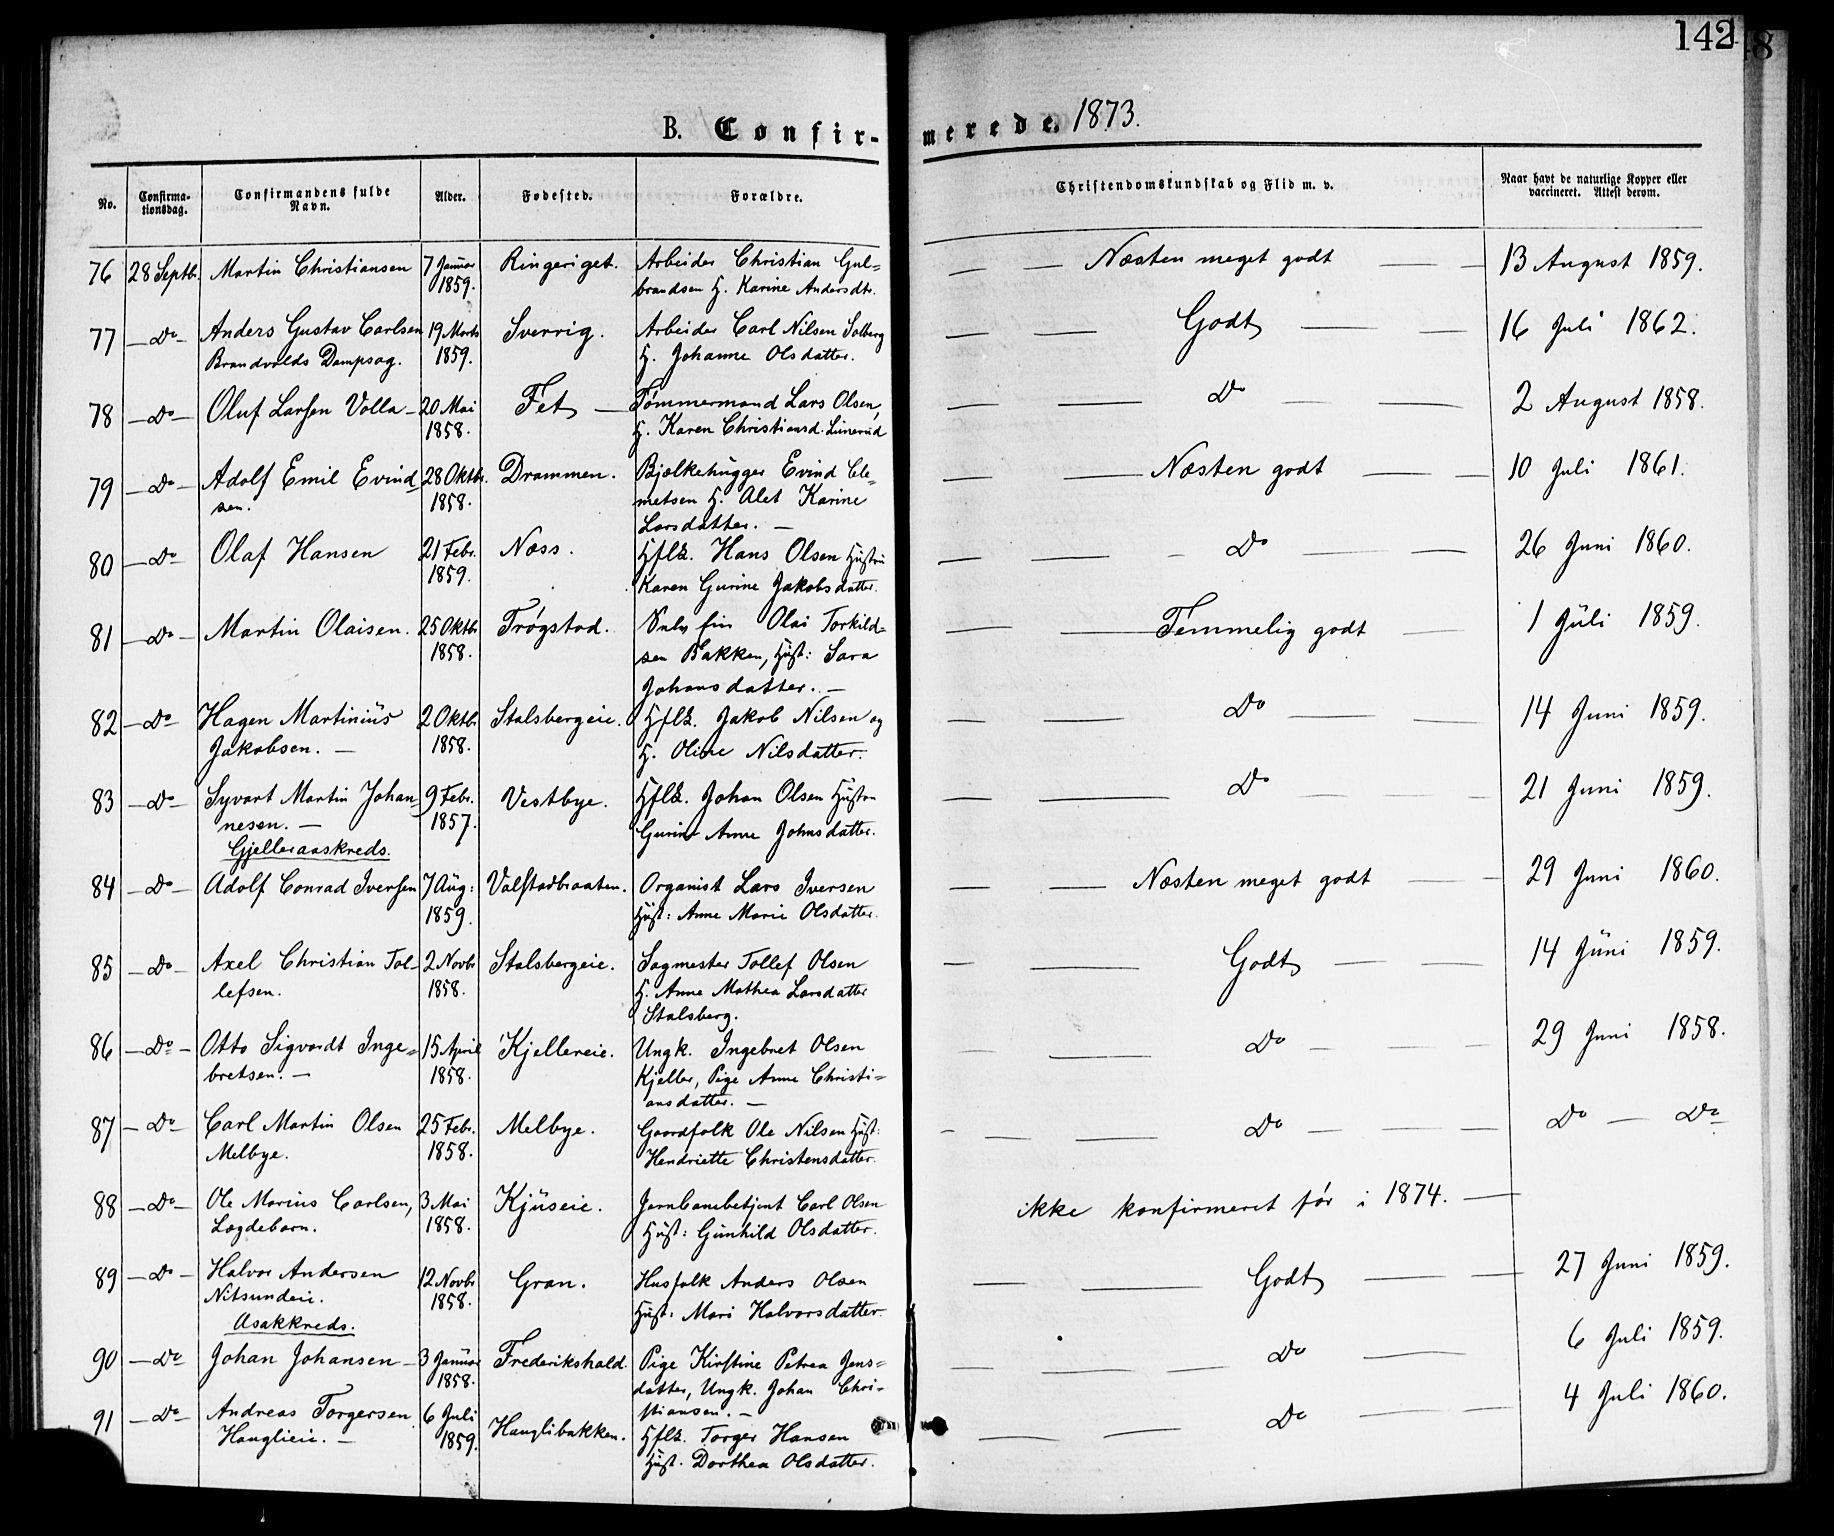 142
8
B. Confir-merede. 1873.
No. | Confirma-tionsdag. | Confirmandens fulde Navn. | Alder. | Fødested. | Forældre. | Christendomskundskab og Flid m. v. | Naar havt de naturlige Kopper eller vaccineret. Attest derom.
76 28 Septb. Martin Christiansen 7 Januar Ringeriget. Arbeider Christian Gul= — — Næsten meget godt — — 13 August 1859.
1859. brandsen H. Karine Andersdtr.
77 — Do — Anders Gustav Carlsen 19 Marts Sverrig. Arbeider Carl Nilsen Solberg — — Godt — — 16 Juli 1862.
Brandvolds Dampsag. 1859. H. Johanne Olsdatter.
78 — Do — Oluf Larsen Volla — 20 Mai Fet — Tømmermand Lars Olsen, — — Do — — 2 August 1858.
1858. H. Karen Christiansd. Limerud
79 — Do — Adolf Emil Evind= 28 Oktbr. Drammen. Bjælkehugger Evind Cle= — — Næsten godt — — 10 Juli 1861.
sen. 1858. metsen H. Alet Karine
Larsdatter. —
80 — Do Olaf Hansen 21 Febr. Næss. Hflk. Hans Olsen Hustru — — - Do — — 26 Juni 1860.
1859. Karen Gurine Jakobsdatter.
81 — Do — Martin Olaisen. 25 Oktbr. Trøgstad. Olai Torkild= — — Temmelig godt — 1 Juli 1859.
1858. sen Bakken, Hust: Sara
Johansdatter. —
82 — Do — Hagen Martinius 2 Oktbr. Stalsbergeie. Hflk. Jakob Nilsen og — — Do — — 14 Juni 1859.
Jakobsen. — 1858. H. Oline Nilsdatter.
83 — Do — Syvart Martin Johan= 9 Febr. Vestbye. Hflk. Johan Olsen Hustru — — Do — — 21 Juni 1859.
nesen. — 1857. Gurine Anne Johnsdatter.
Gjelleraaskreds.
84 — Do — Adolf Conrad Iversen 7 Aug: Valstadbraaten. Organist Lars Iversen — — Næsten meget godt — — 29 Juni 1860.
1859. Hust: Anne Marie Olsdatter.
85 — Do — Axel Christian Tol= 2 Novbr Stalsbergeie. Sagmester Tollef Olsen — — Godt — — 14 Juni 1859.
lefsen. 1858. H. Anne Mathea Larsdatter
Stalsberg.
86 — Do — Otto Sigvardt Inge= 15 April Kjellereie. Ungk. Ingebret Olsen — — Do — — 29 Juni 1858.
bretsen. — 1858. Kjeller, Pige Anne Christi=
ansdatter. —
87 — Do — Carl Martin Olsen 25 Febr. Melbye. Gaardfolk Ole Nilsen Hust: — — — Do — — Do — Do
Melbye. 1858. Hendriette Christensdatter.
88 — Do — Ole Marius Carlsen, 3 Mai Kjuseie. Jernbanebetjent Carl Olsen ikke konfirmeret før i 1874. —
Lægdebarn. 1858. Hust: Gunhild Olsdatter.
89 — Do — Halvor Andersen 12 Novbr Gran. Husfolk Anders Olsen — — Godt — — 27 Juni 1859.
Nitsundeie. 1858. Hust: Mari Halvorsdatter
Asakkreds.
90 — Do Johan Johansen — 3 Januar Frederikshald. Pige Kirstine Petrea Jens= — — — Do — 6 Juli 1859.
1858. datter, Ungk. Johan Chri=
stiansen. —
91 — Do — Andreas Torgersen 6 Juli Hauglibakken. Hflk. Torger Hansen — — Do — — 4 Juli 1860.
Hauglieie. — 1859. Hust. Dorthea Olsdatter.